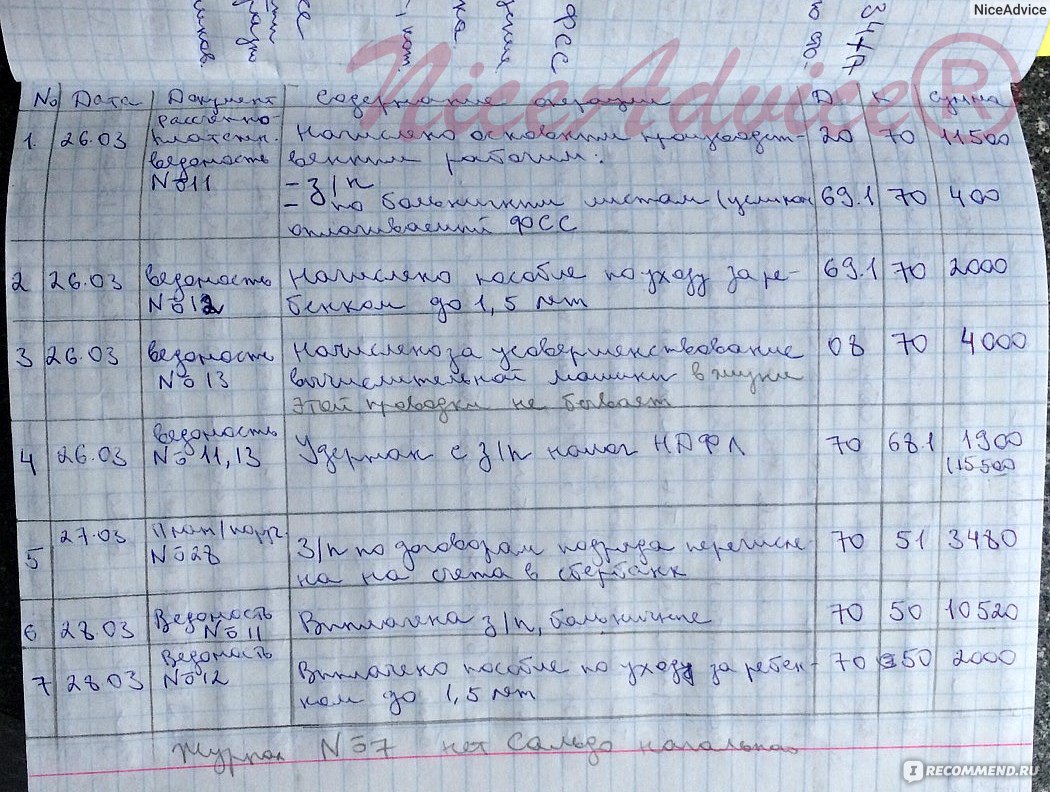 NiceAdvice
ФСС
NiceAdvice®
№ Дата Документ Содержание операции Д К Сумма
1. 26.03 рассчётно-платежн. ведомость №11 Начислено основным производст-
венным рабочим:
- З/п 20 70 11500
- по больничным листам (
оплачиваемый ФСС 69.1 70 400
2 26.03 ведомость №12 Начислено пособие по уходу за ре-
бенком до 1,5 лет 69.1 70 2000
3 26.03 ведомость №13 Начислено за усовершенствование
вычислительной машины в жизни
этой проводки не бывает 08 70 4000
4 26.03 Ведомость №11,13 Удержан с з/п налог НДФЛ 70 68.1 1900
(15500
5 27.03 №28 З/п по договорам подряда перечисле-
на на счета в сбербанк 70 51 3480
6 28.03 Ведомость №11 Выплачена з/п, больничные 70 50 10520
7 28.03 Ведомость №12 Выплачено пособие по уходу за ребен-
ком до 1,5 лет 70 50 2000
Журнал №7 нет Сальдо начального
IRECOMMEND.RU